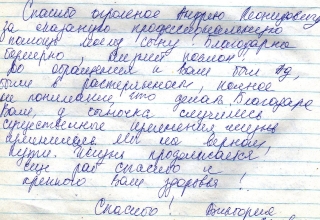 Спасибо огромное Андрею Леонидовичу
за оказанную профессиональную
помощь моему сыну благодарна
безмерно, низкий поклон
До обращения к Вам был ад,
были в растерянности, полное
не понимание, что делать. Благодаря
Вам, у сыночка случились
существенные изменения жизнь
мы на верном
пути. Жизнь продолжается
сын рад спасибо и
крепкого Вам здоровья!
Спасибо! Виктория